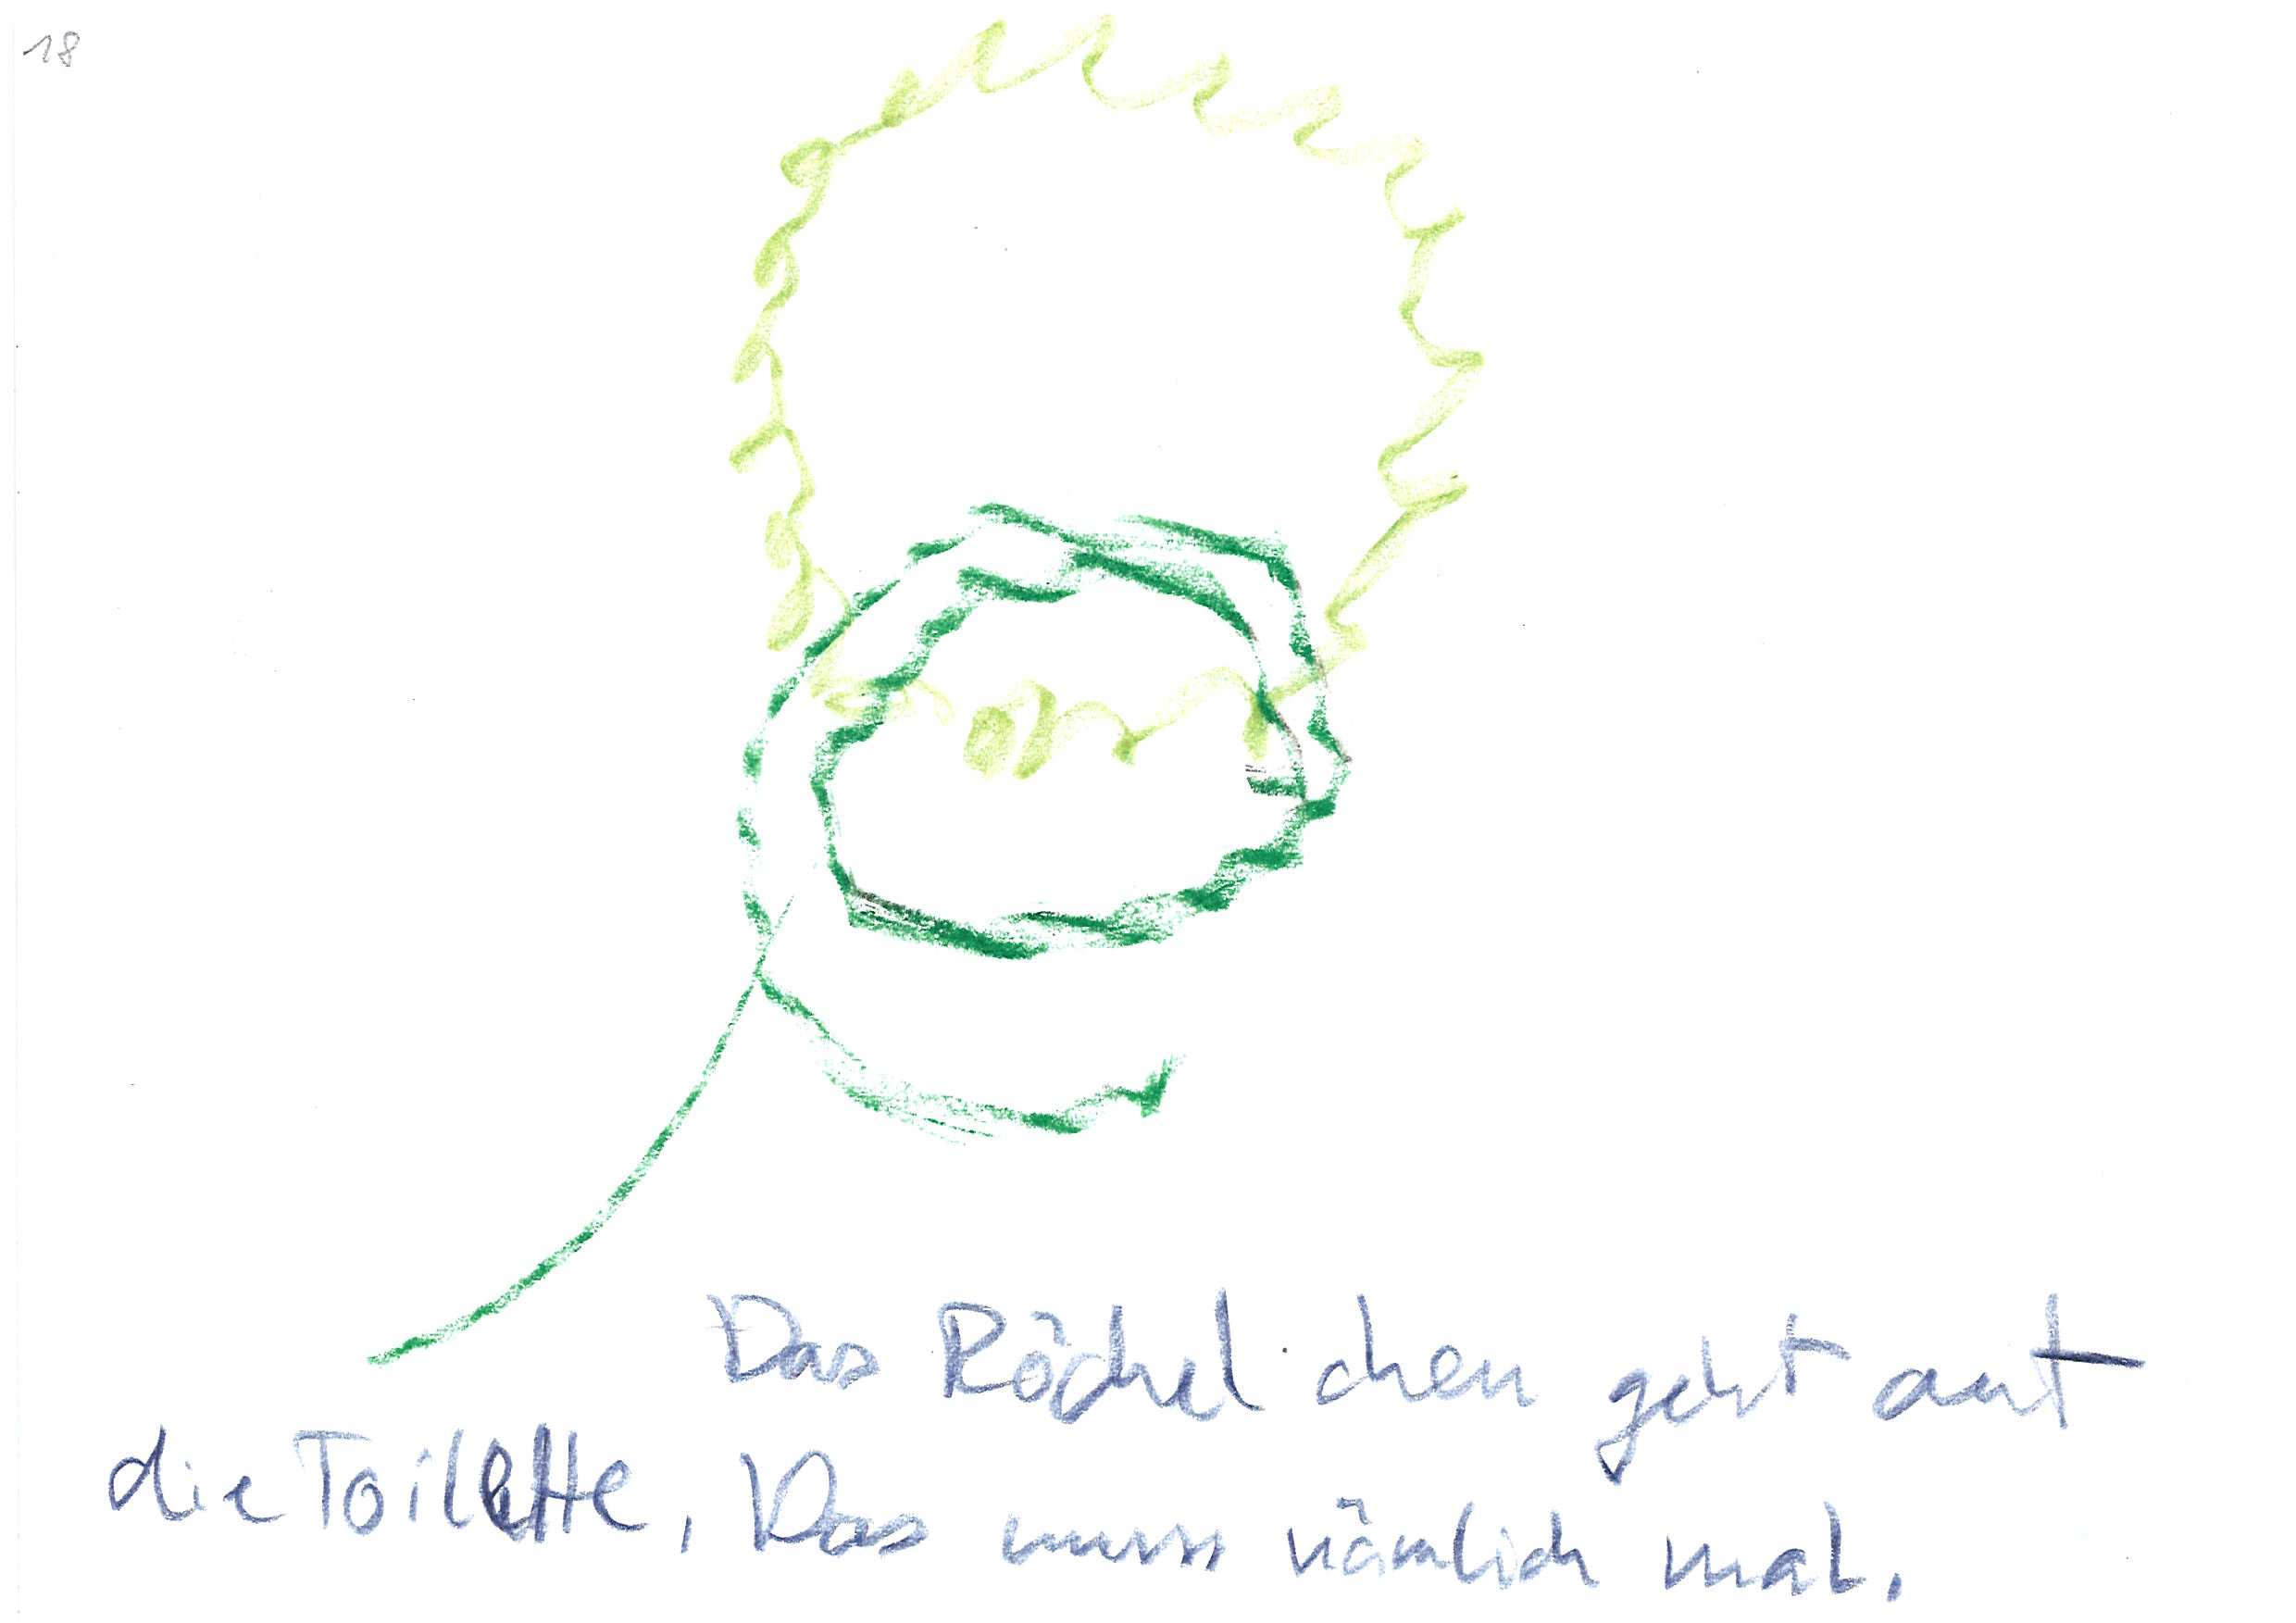 18
Das Röchelchen geht auf
die Toilette, Das muss nämlich mal.